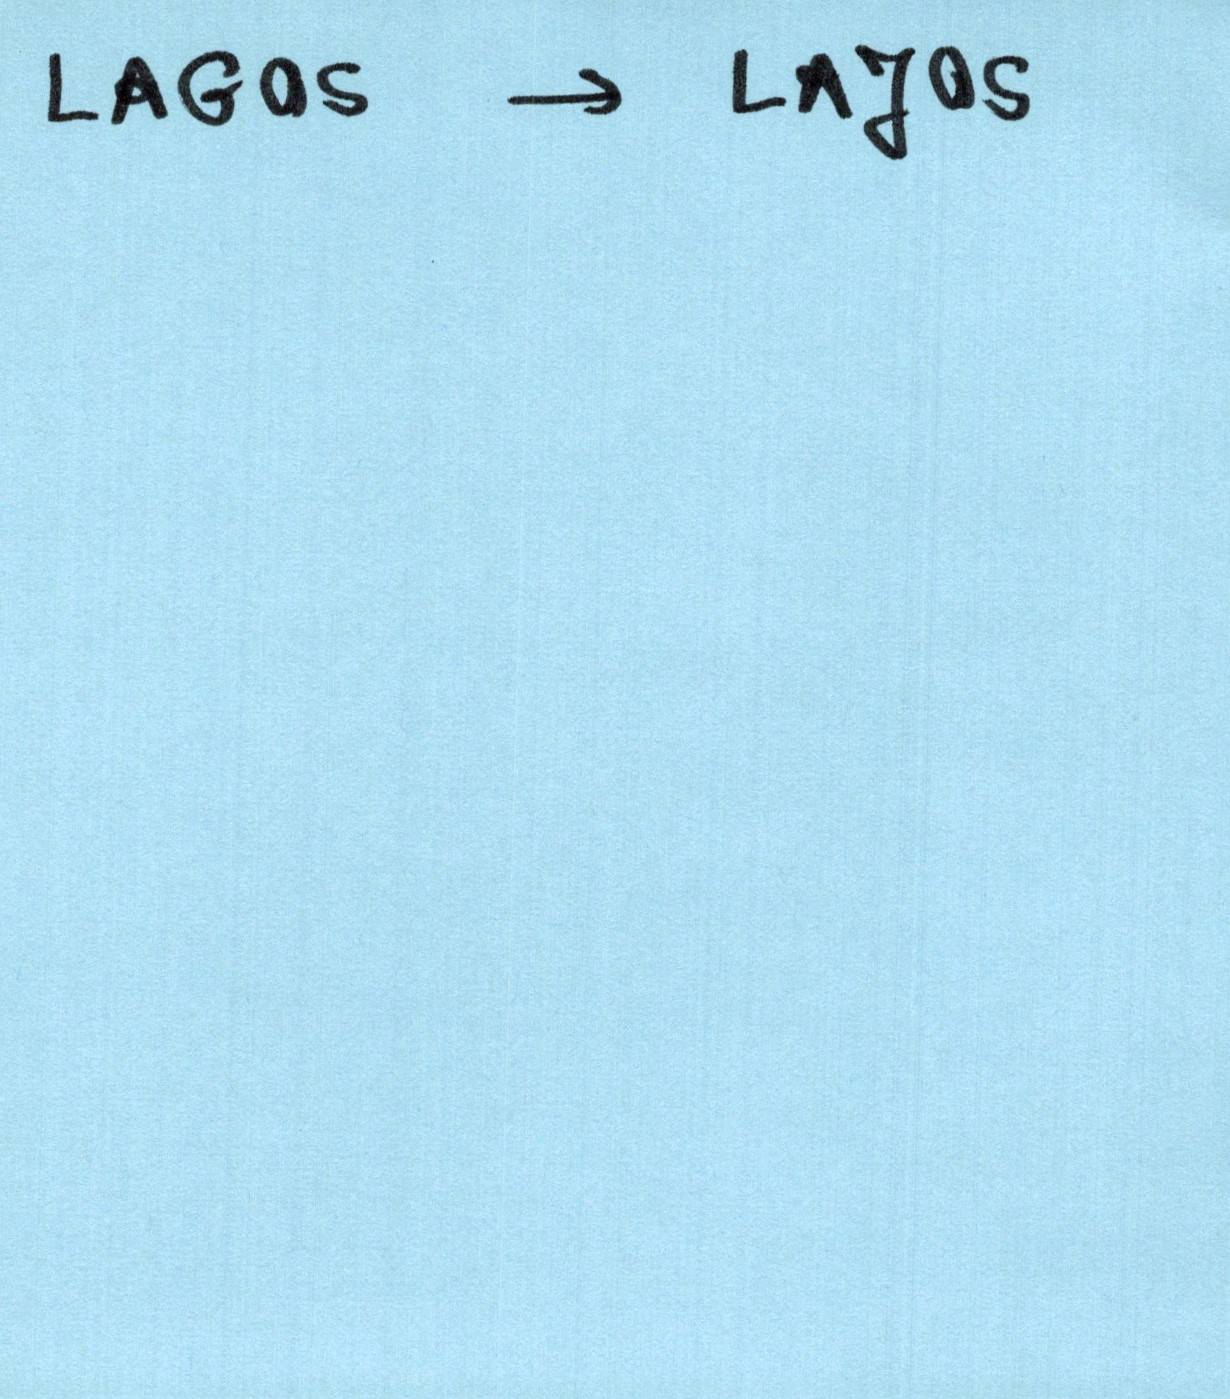 LAGOS → LAJOS